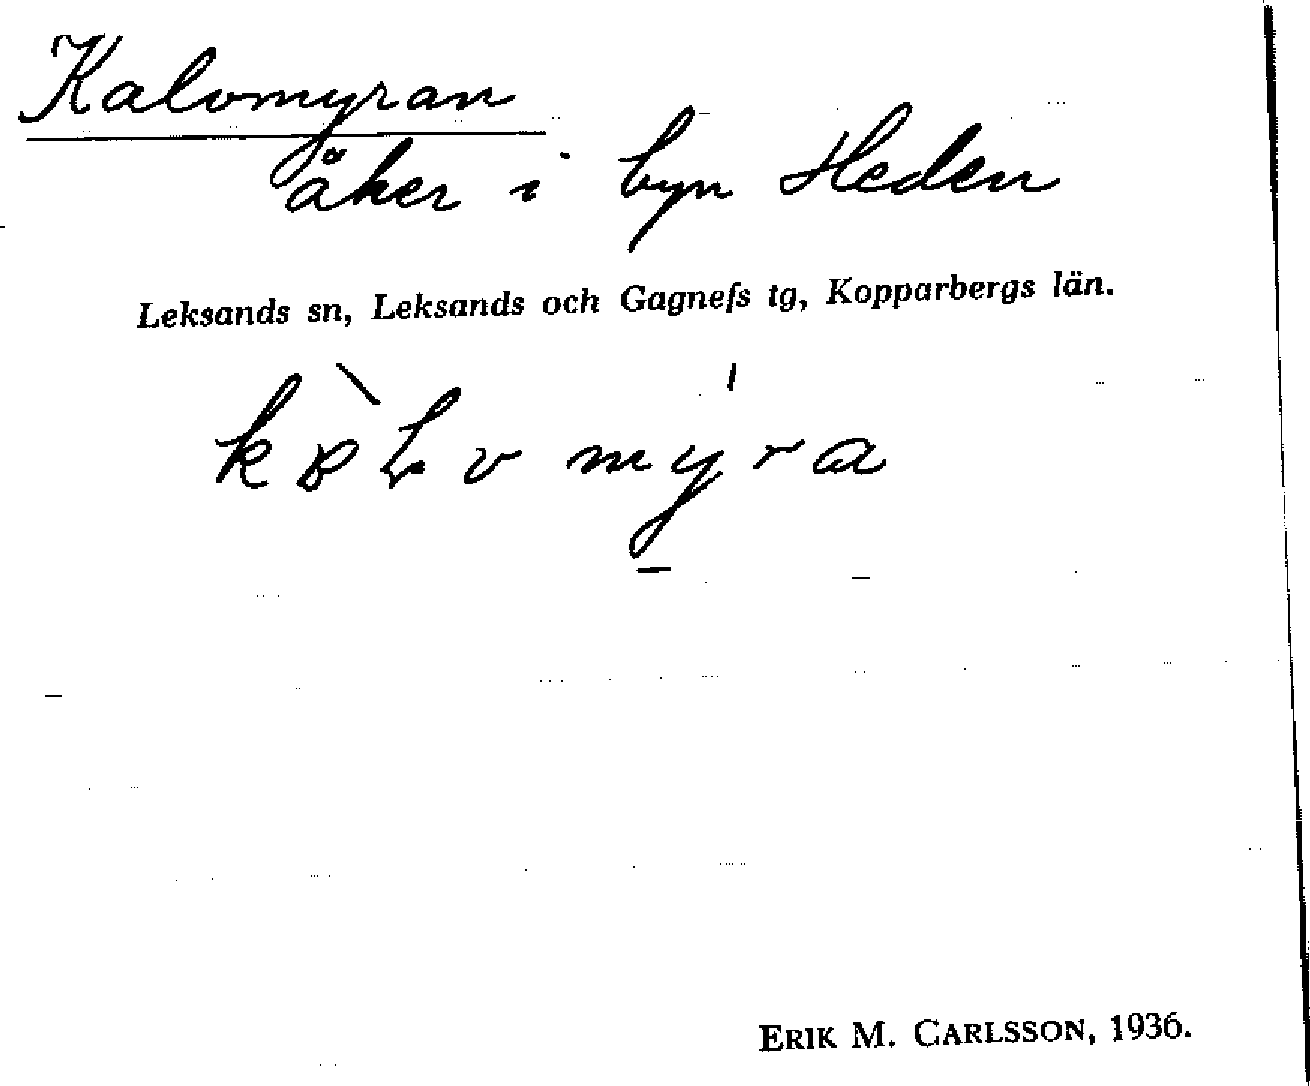 Kalvmyran
åker i byn Heden
Leksands sn, Leksands och Gagnefs tg, Kopparbergs län.
ERIK M. CARLSSON, 1936.